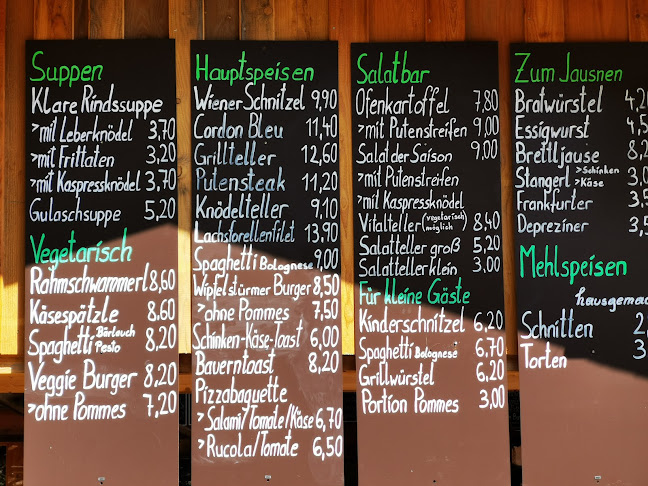 Suppen
Klare Rindssuppe
>mit Leberknödel 3,70
>mit Frittaten 3,20
>mit Kaspressknödel 3,70
Gulaschsuppe 5,20
Vegetarisch
Rahmschwammerl 8,60
Käsespätzle 8,60
Spaghetti >Bärlauch >Pesto 8,20
Veggie Burger 8,20
>ohne Pommes 7,20
Hauptspeisen
Wiener Schnitzel 9,90
Cordon Bleu 11,40
Grillteller 12,60
Putensteak 11,20
Knödelteller 9,10
Lachsforellenfilet 13,90
Spaghetti Bolognese 9,00
Wipfelstürmer Burger 8,50
>ohne Pommes 7,50
Schinken-Käse-Toast 6,00
Bauerntoast 8,20
Pizzabaguette
>Salami/Tomate/Käse 6,70
>Rucola/Tomate 6,50
Salatbar
Ofenkartoffel 7,80
>mit Putenstreifen 9,00
Salat der Saison 9,00
>mit Putenstreifen
>mit Kaspressknödel
Vitalteller (vegetarisch möglich) 8,40
Salatteller groß 5,20
Salatteller klein 3,00
Für kleine Gäste
Kinderschnitzel 6,20
Spaghetti Bolognese 6,70
Grillwürstel 6,20
Portion Pommes 3,00
Zum Jausnen
Bratwürstel 4,20
Essigwurst 4,5
Brettljause 8,2
Stangerl >Schinken >Käse 3,0
Frankfurter 3,5
Depreziner 3,5
Mehlspeisen
hausgemac
Schnitten 2,
Torten 3,